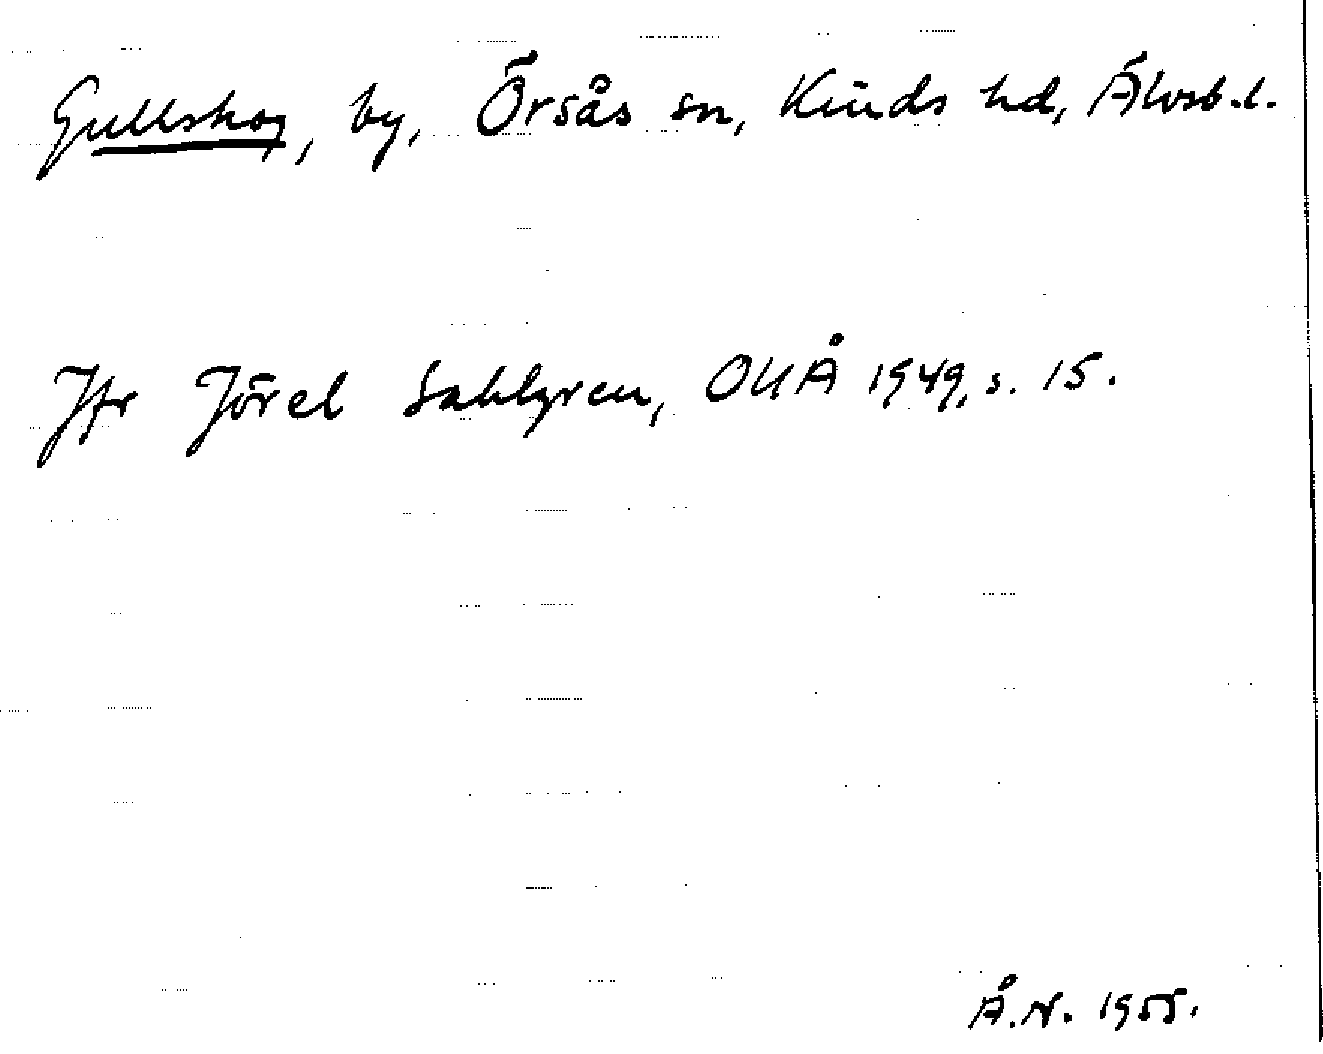 Gullskog, by, Örsås sn, Kinds hd, Älvsb.l.
Jfr Jöret Sahlgren, OUÅ 1949, s. 15.
Å.N. 1955.